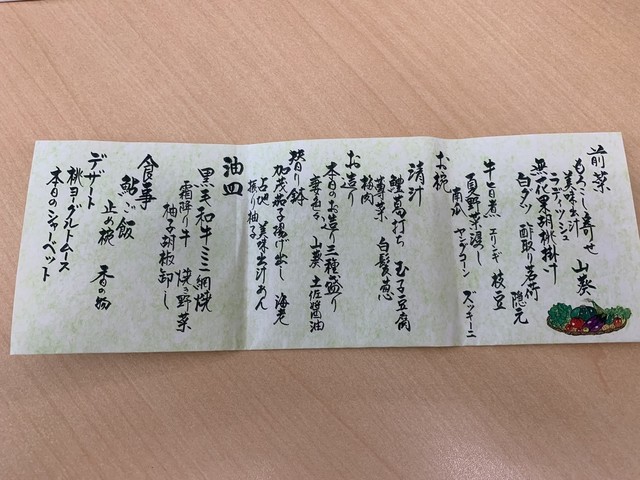 前菜
もろこし寄せ 山葵
美味出汁
ラディッシュ
無花果胡桃掛け
白ダツ 酢取り茗荷 隠元
牛旨煮 エリンギ 枝豆
夏野菜浸し
南瓜 ヤングコーン ズッキーニ
お椀
清汁
鱧葛打ち 玉子豆腐
蓴菜 白髪葱
梅肉
お造り
本日のお造り三種盛り
妻色々 山葵 土佐醤油
替り鉢
加茂茄子揚げ出し 海老
占地 美味出汁あん
振り柚子
油皿
黒毛和牛ミニ網焼
霜降り牛 焼き野菜
柚子胡椒卸し
食事
鮎ご飯
止め椀 香の物
デザート
桃ヨーグルトムース
本日のシャーベット